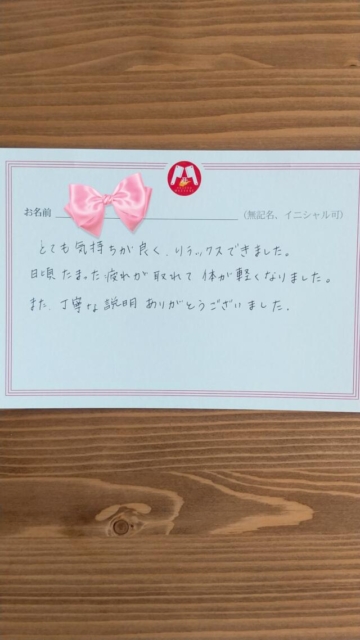 お名前
(無記名、イニシャル可)
とても気持ちが良く、リラックスできました。
日頃たまった疲れが取れて体が軽くなりました。
また、丁寧な説明ありがとうございました。